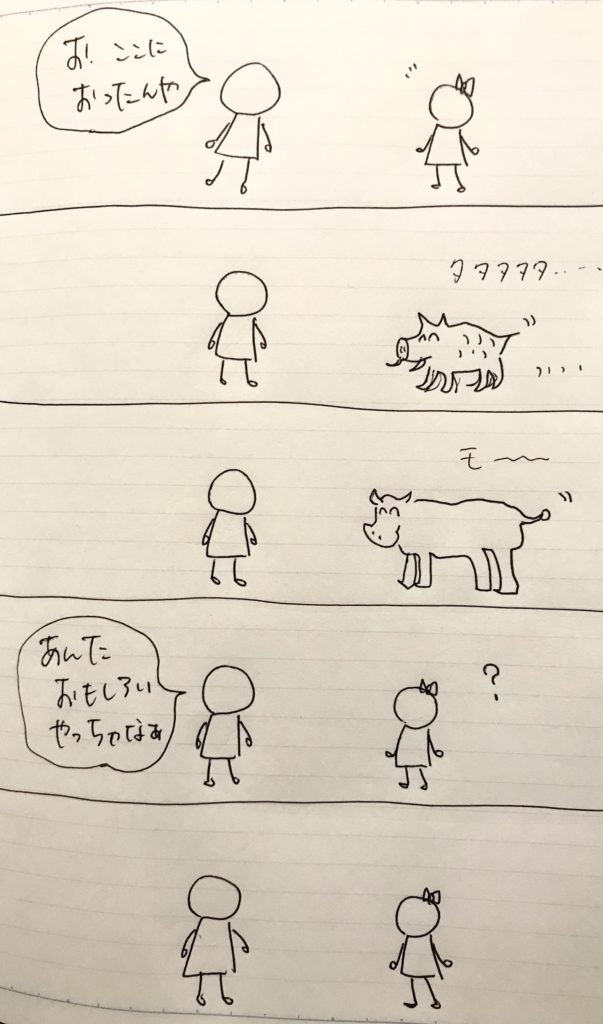 お! ここに
おったんや
タタタタタ....
モ〜〜
あんた
おもしろい
やっちゃなぁ
?